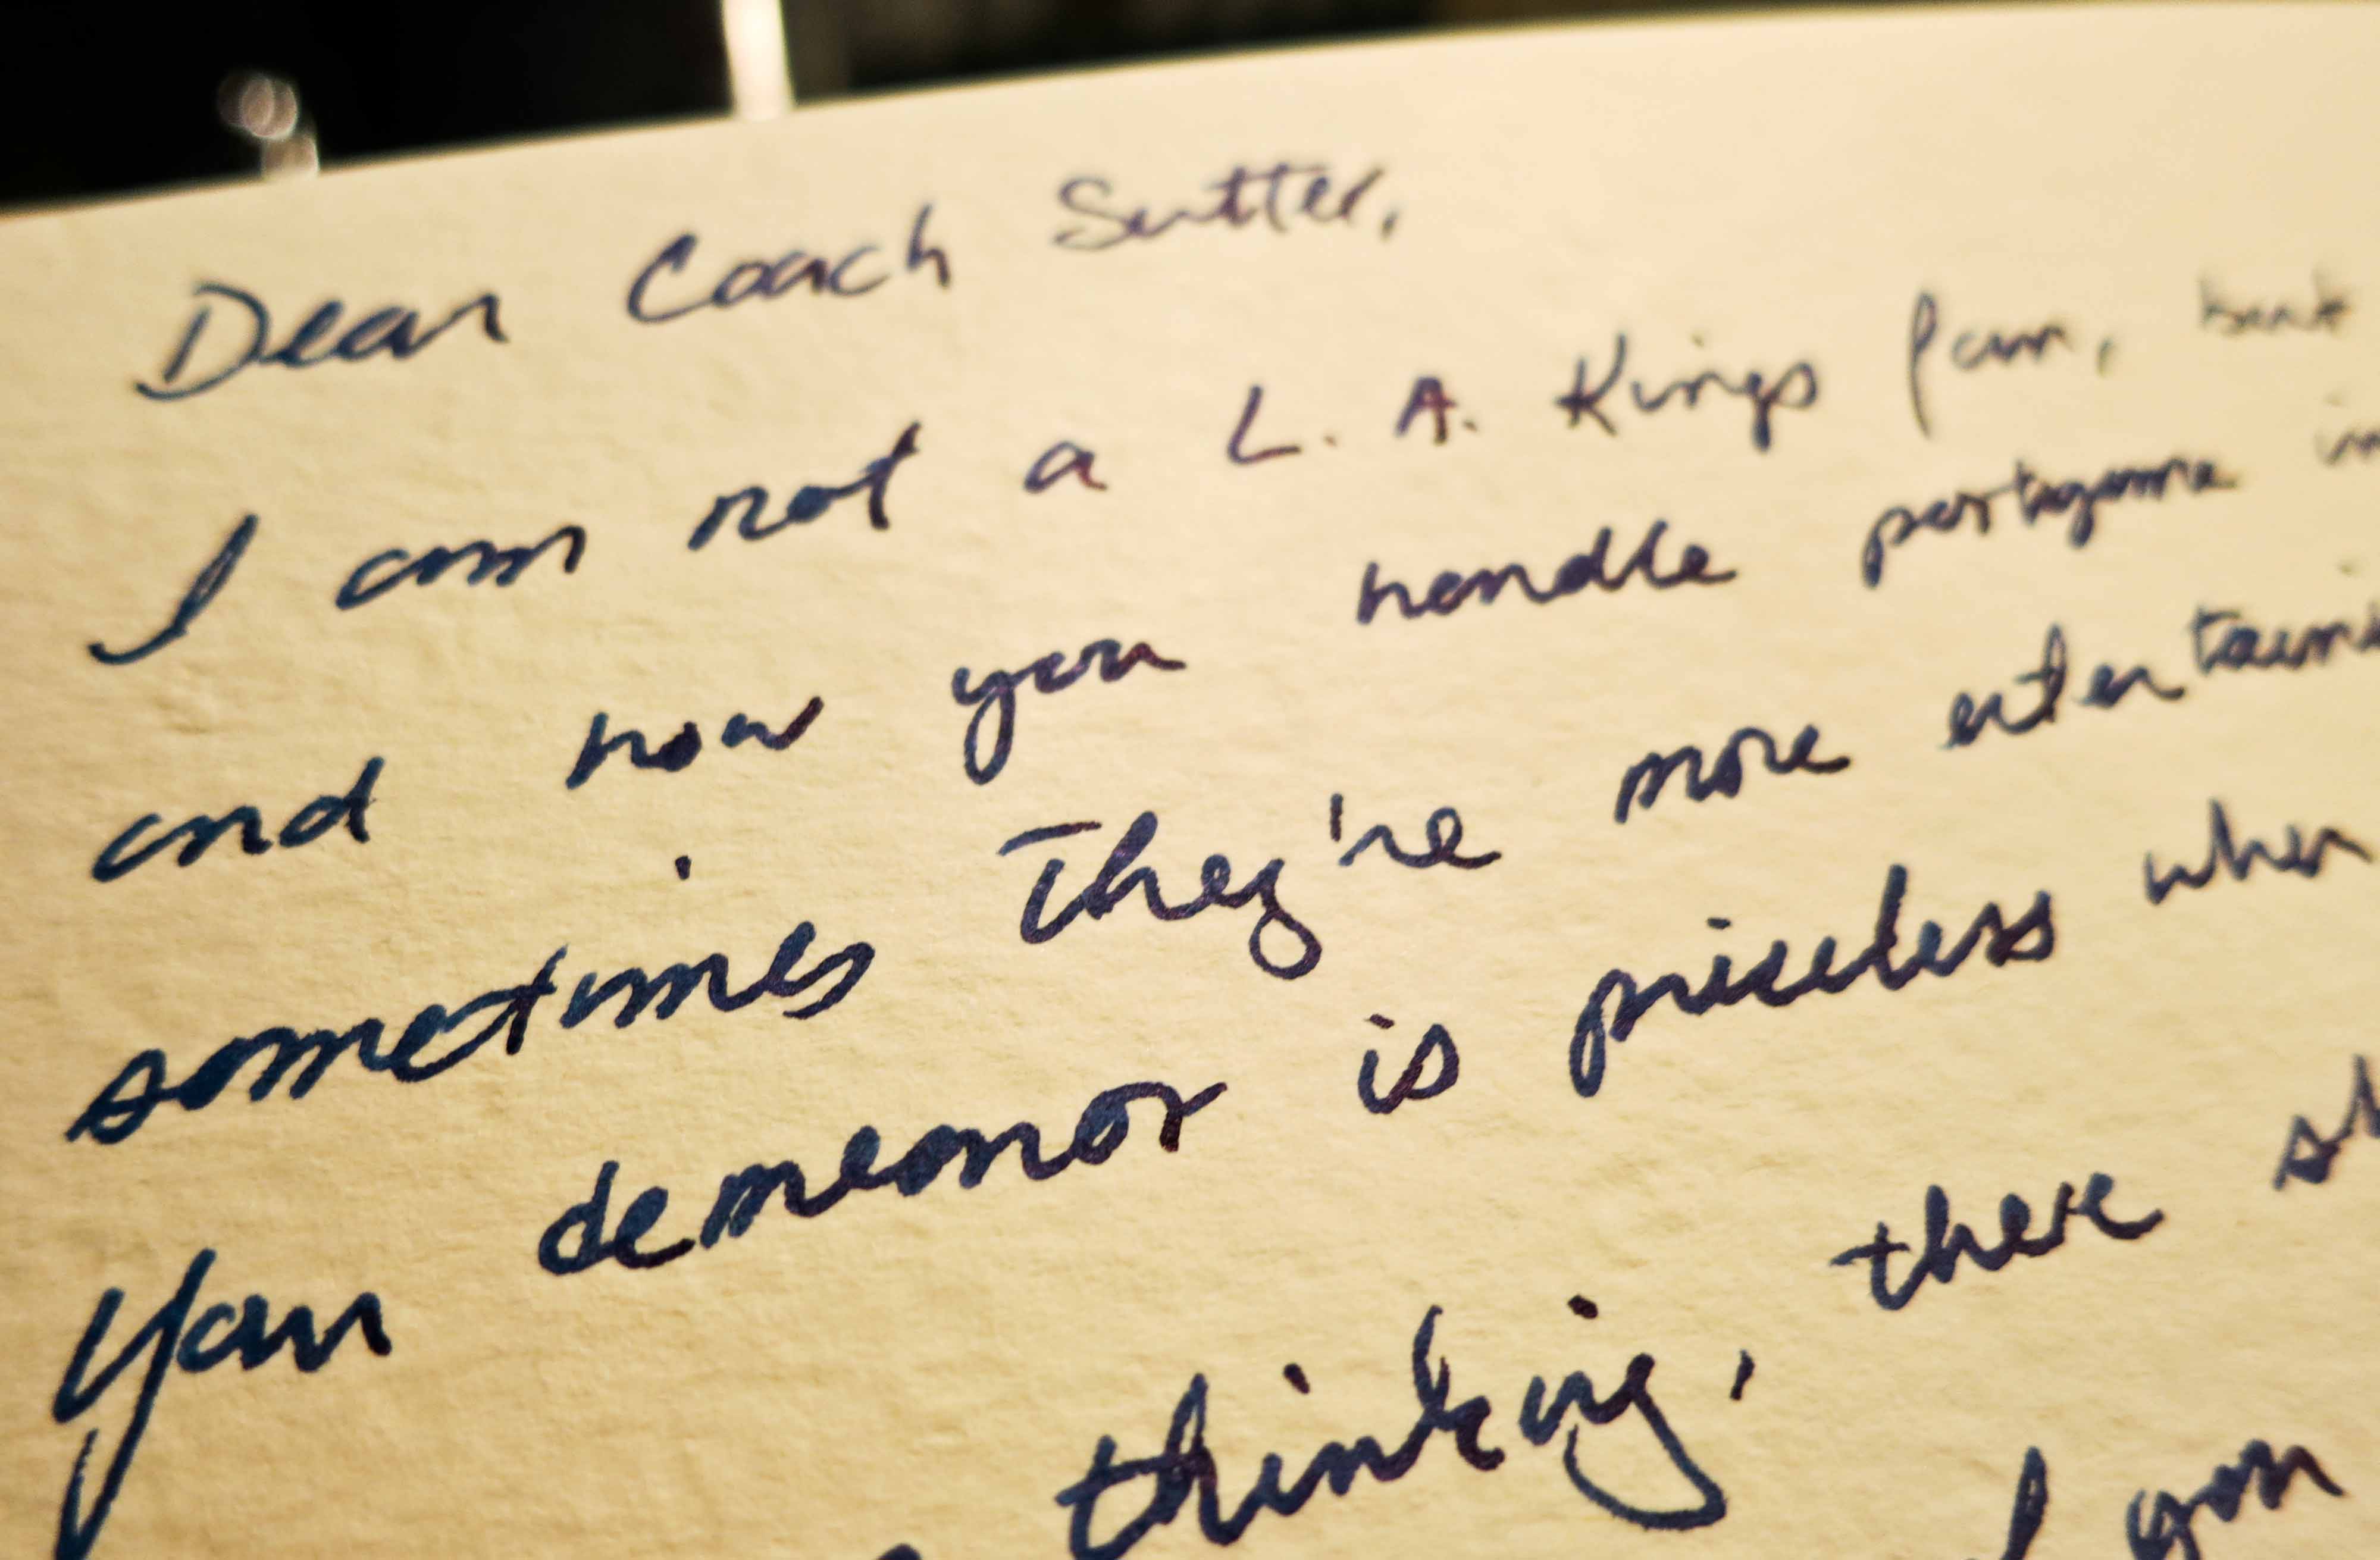 Dear Coach Sutter,
I am not a L. A. Kings fan, but
and how you handle postgame in
sometimes they're more entertaini
Your demeanor is priceless when
thinking, there sh
I you